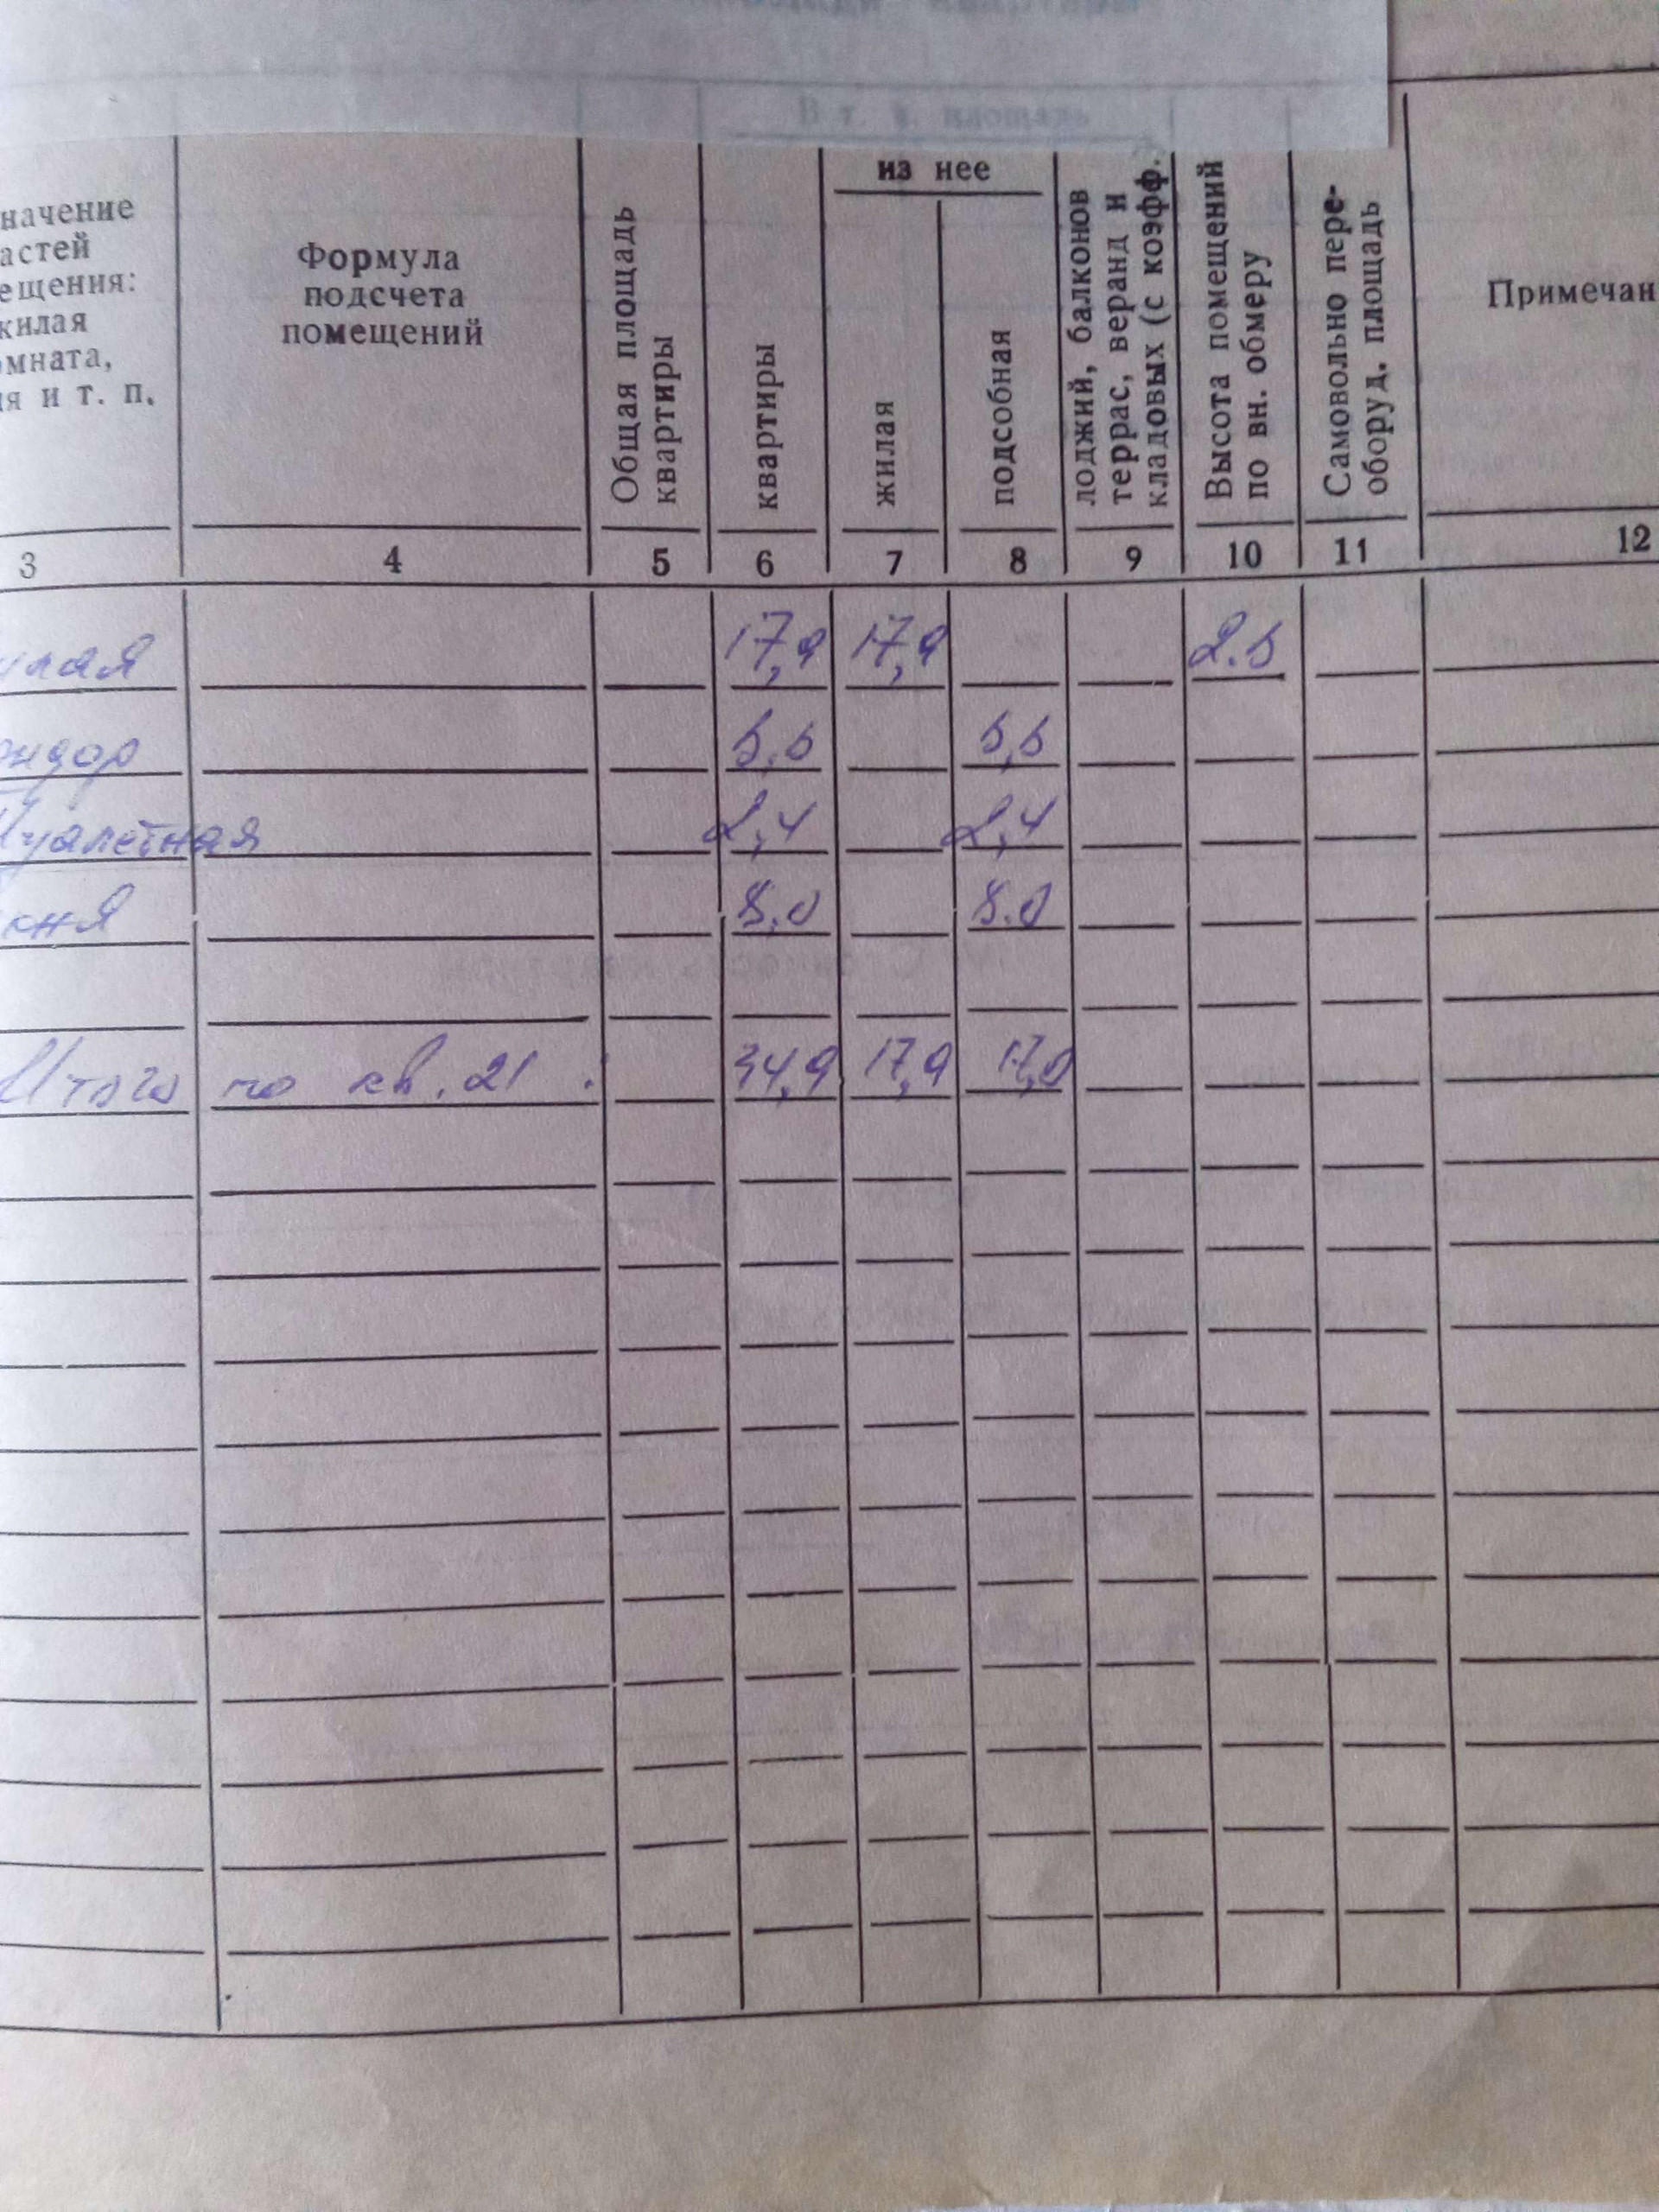 В т. ч. площадь
из нее
начение
астей
ещения:
килая
омната,
ия и т. п.
Формула
подсчета
помещений
Общая площадь
квартиры
квартиры
жилая
подсобная
лоджий, балконов
террас, веранд и
кладовых (с коэфф.
Высота помещений
по вн. обмеру
Самовольно пере-
оборуд. площадь
Примечан
3 4 5 6 7 8 9 10 11 12
илая 17,9 17,9 2.5
ридор 6.6 6,6
туалетная 2,4 2,4
хня 8.0 8.0
Итого по кв. 21: 34,9 17,9 17,0